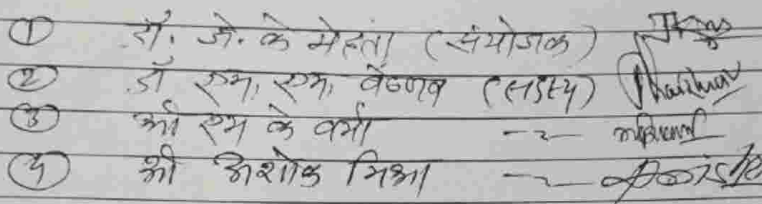 ① डॉ. जे. के मेहता (संयोजक)
② डॉ एम. एम. वैष्णव (सदस्य)
③ श्री एम के वर्मा -"-
④ श्री अशोक मिश्रा -"-